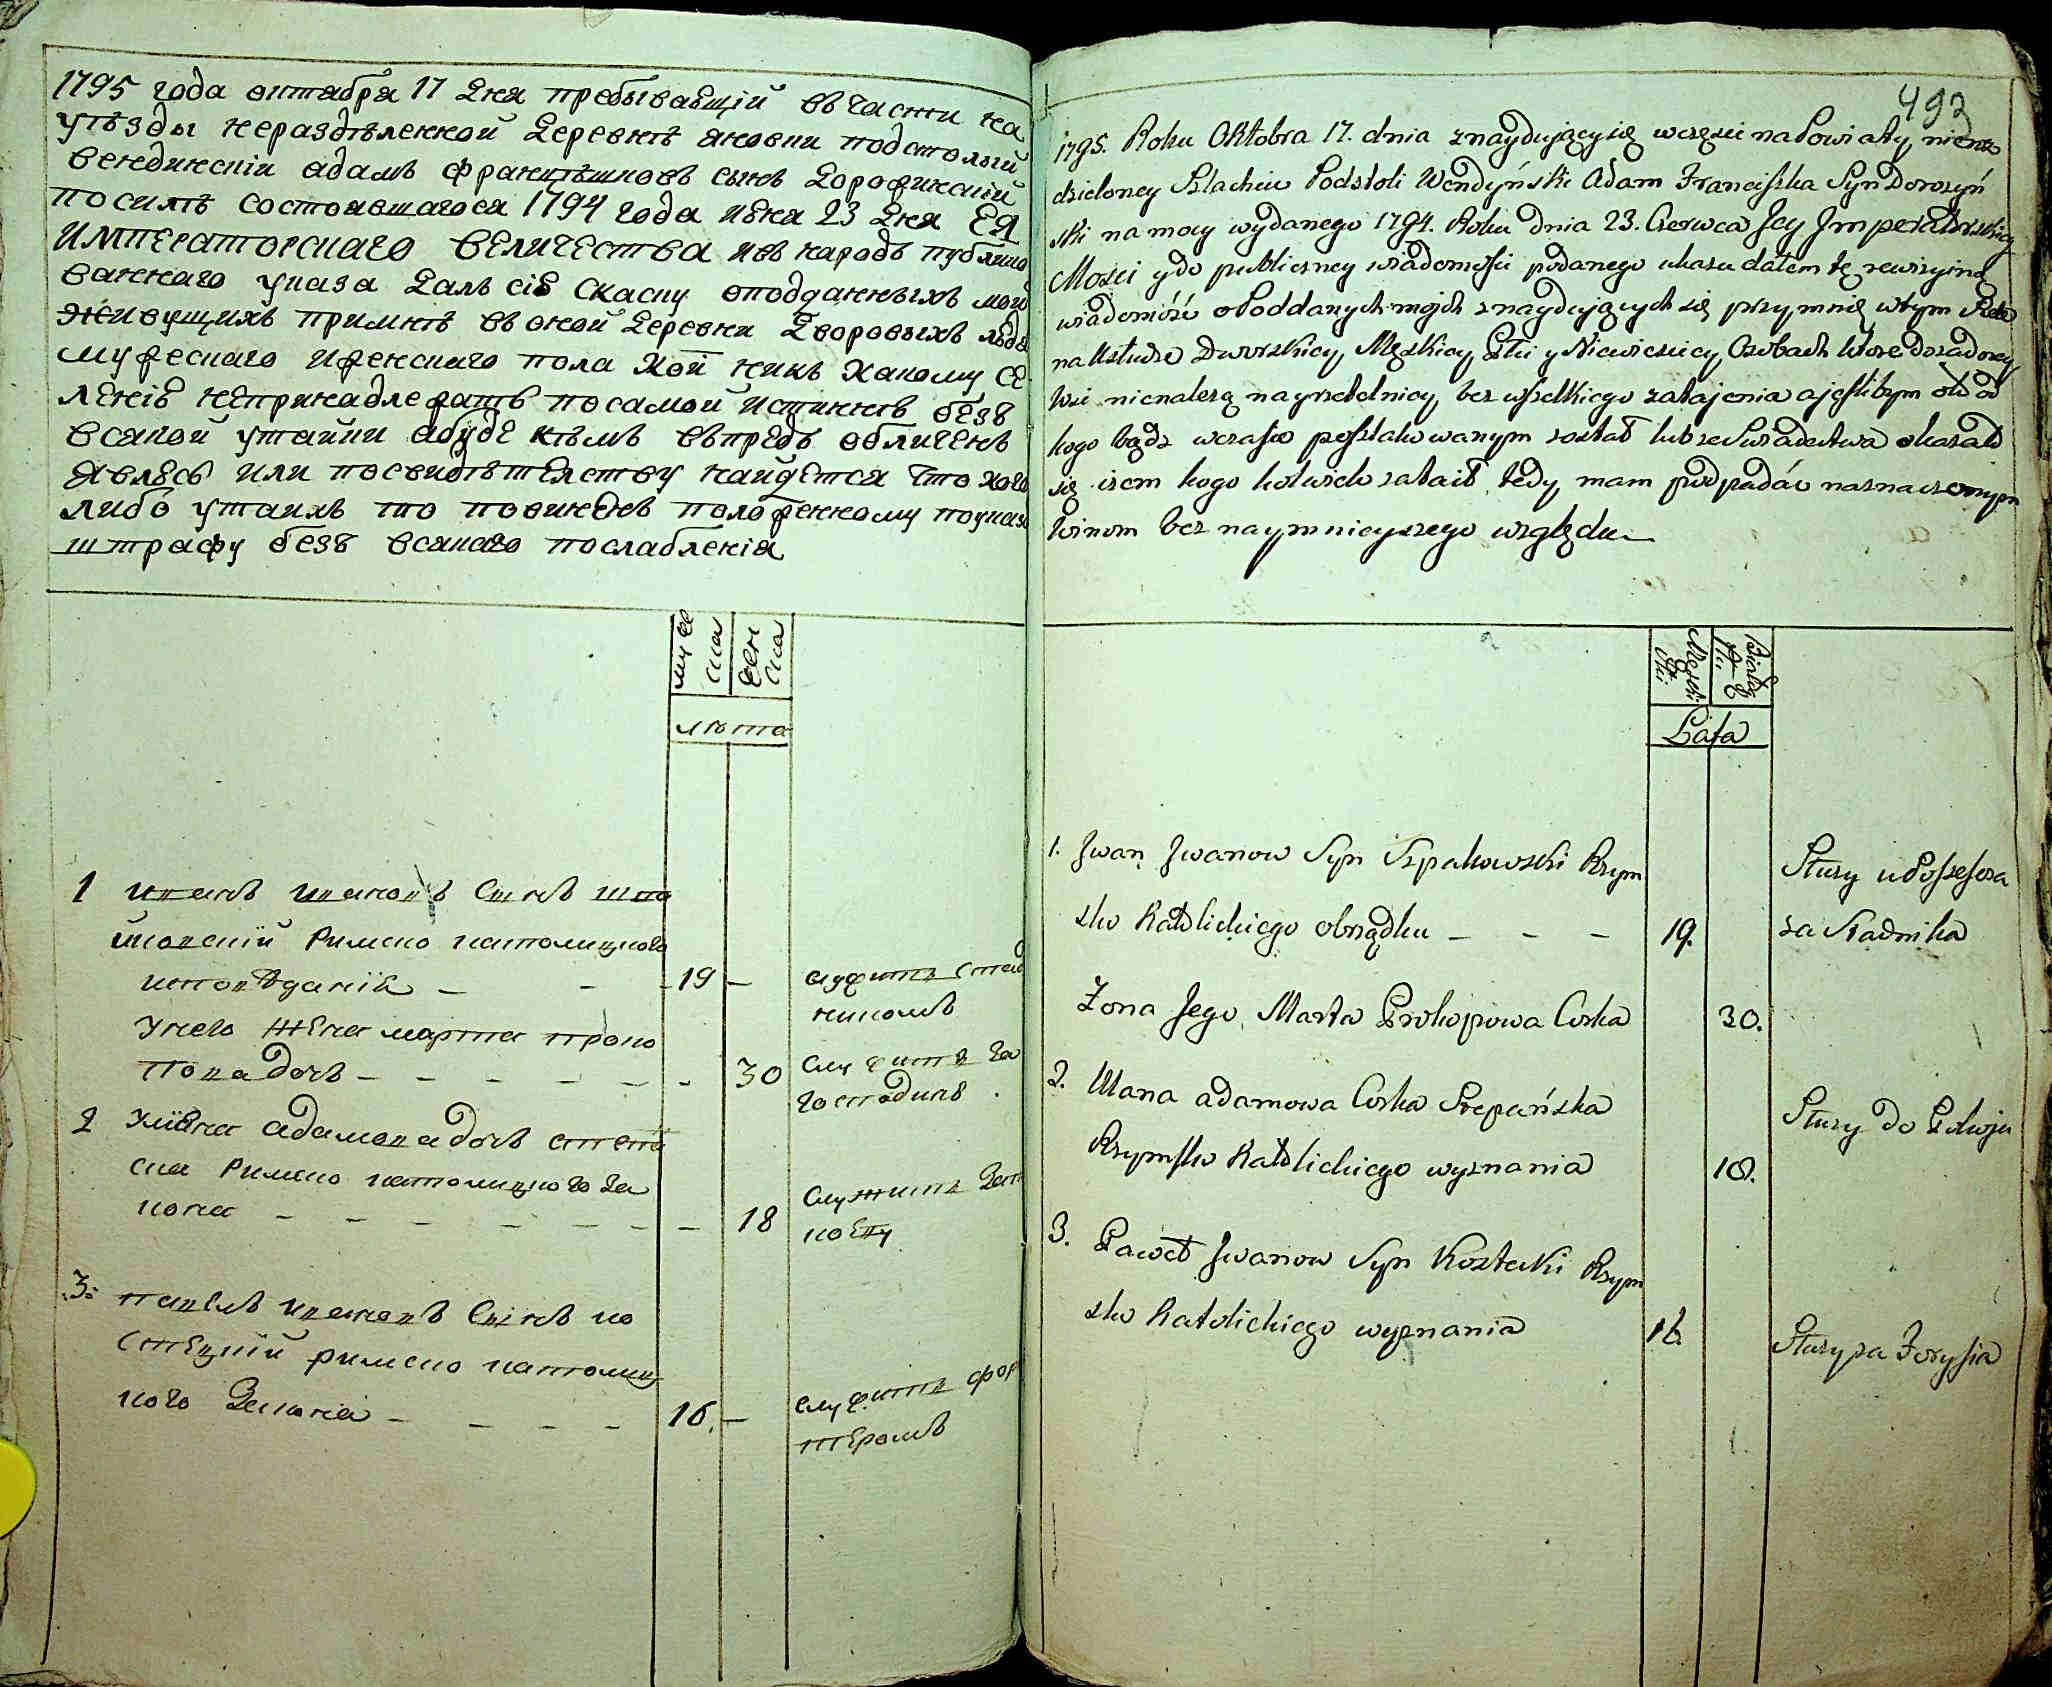 1795 года октабра 17 дня пребывающій въ части на
уѣзды нераздѣленной деревнѣ яновки подстолый
вендинскій адамъ францѣшковъ сынъ дорожинскій
посилѣ состоявшагося 1794 года июня 23 дня ЕЯ
ИМПЕРАТОРСКАГО ВЕЛИЧЕСТВА ивъ народъ публико
ваннаго указа далъ сію скаску оподданныхъ мой
живущихъ примнѣ въ оной деревни дворовыхъ людя
мужескаго иженскаго пола кои никъ какому се
ленію непринадлежатъ посамой истиннѣ безъ
всякой утайки абуде кѣмъ въпредь обличенъ
явлюсь или посвидѣтелству найдется что кого
либо утаилъ то повиненъ положенному поуказу
штрафу безъ всякаго послабленія
муже
ска
жен
ска
лѣта
1 иванъ ивановъ сынъ шпа
ковскій Римско католицкого
исповѣданія – – – 19 – служитъ стад
никомъ
Унего жена марта проко
пова дочь – – – – – – 30 служитъ за
господинѣ
2 Уліяна адамова дочь степа
ска Римско католицкого за
кона – – – – – – – 18 служитъ зап
коеву
3 павелъ ивановъ сынъ ко
стецкій римско католиц
кого закона – – – – 16. – служитъ фор
теромъ
493
1795. Roku Oktobra 17. dnia znaydujący się w części na Powiaty nieroz
dzieloney Szlachcic Podstoli Wendyński Adam Franciszka Syn Dorozyń
ski na mocy wydanego 1794. Roku dnia 23. Czerwca Jey Jmperatorskiey
Mości y do publiczney wiadomości podanego ukazu dałem tę rewizyiną
wiadomość o Poddanych moich znaydujących się przymnie w tym
na usłudze Dworskiey Męskiey Płci y Niewieściey Osobach które do żadney
Wsi nienależą nayrzetelniey bez wszelkiego zatajenia a jeslibym od
kogo bądz w czasie poszlakowanym został lub ze Swiadectwa okazało
się iżem kogo kolwiek zataił, tedy mam podpadać naznaczonym
Winom bez naymnieyszego względu
Męski
Białey
Płci
Lata
1. Jwan Jwanow Syn Szpakowski Rzym Służy u Possessora
sko Katolickiego obrządku – – – 19. za Stadnika
Zona Jego Marta Prokopowa Corka 30.
2. Ulana adamowa Corka Stepańska Służy do Pokoju
Rzymsko Katolickiego wyznania 18.
3. Paweł Jwanow Syn Kostecki Rzym
sko Katolickiego wyznania 16. Służy za Forysia